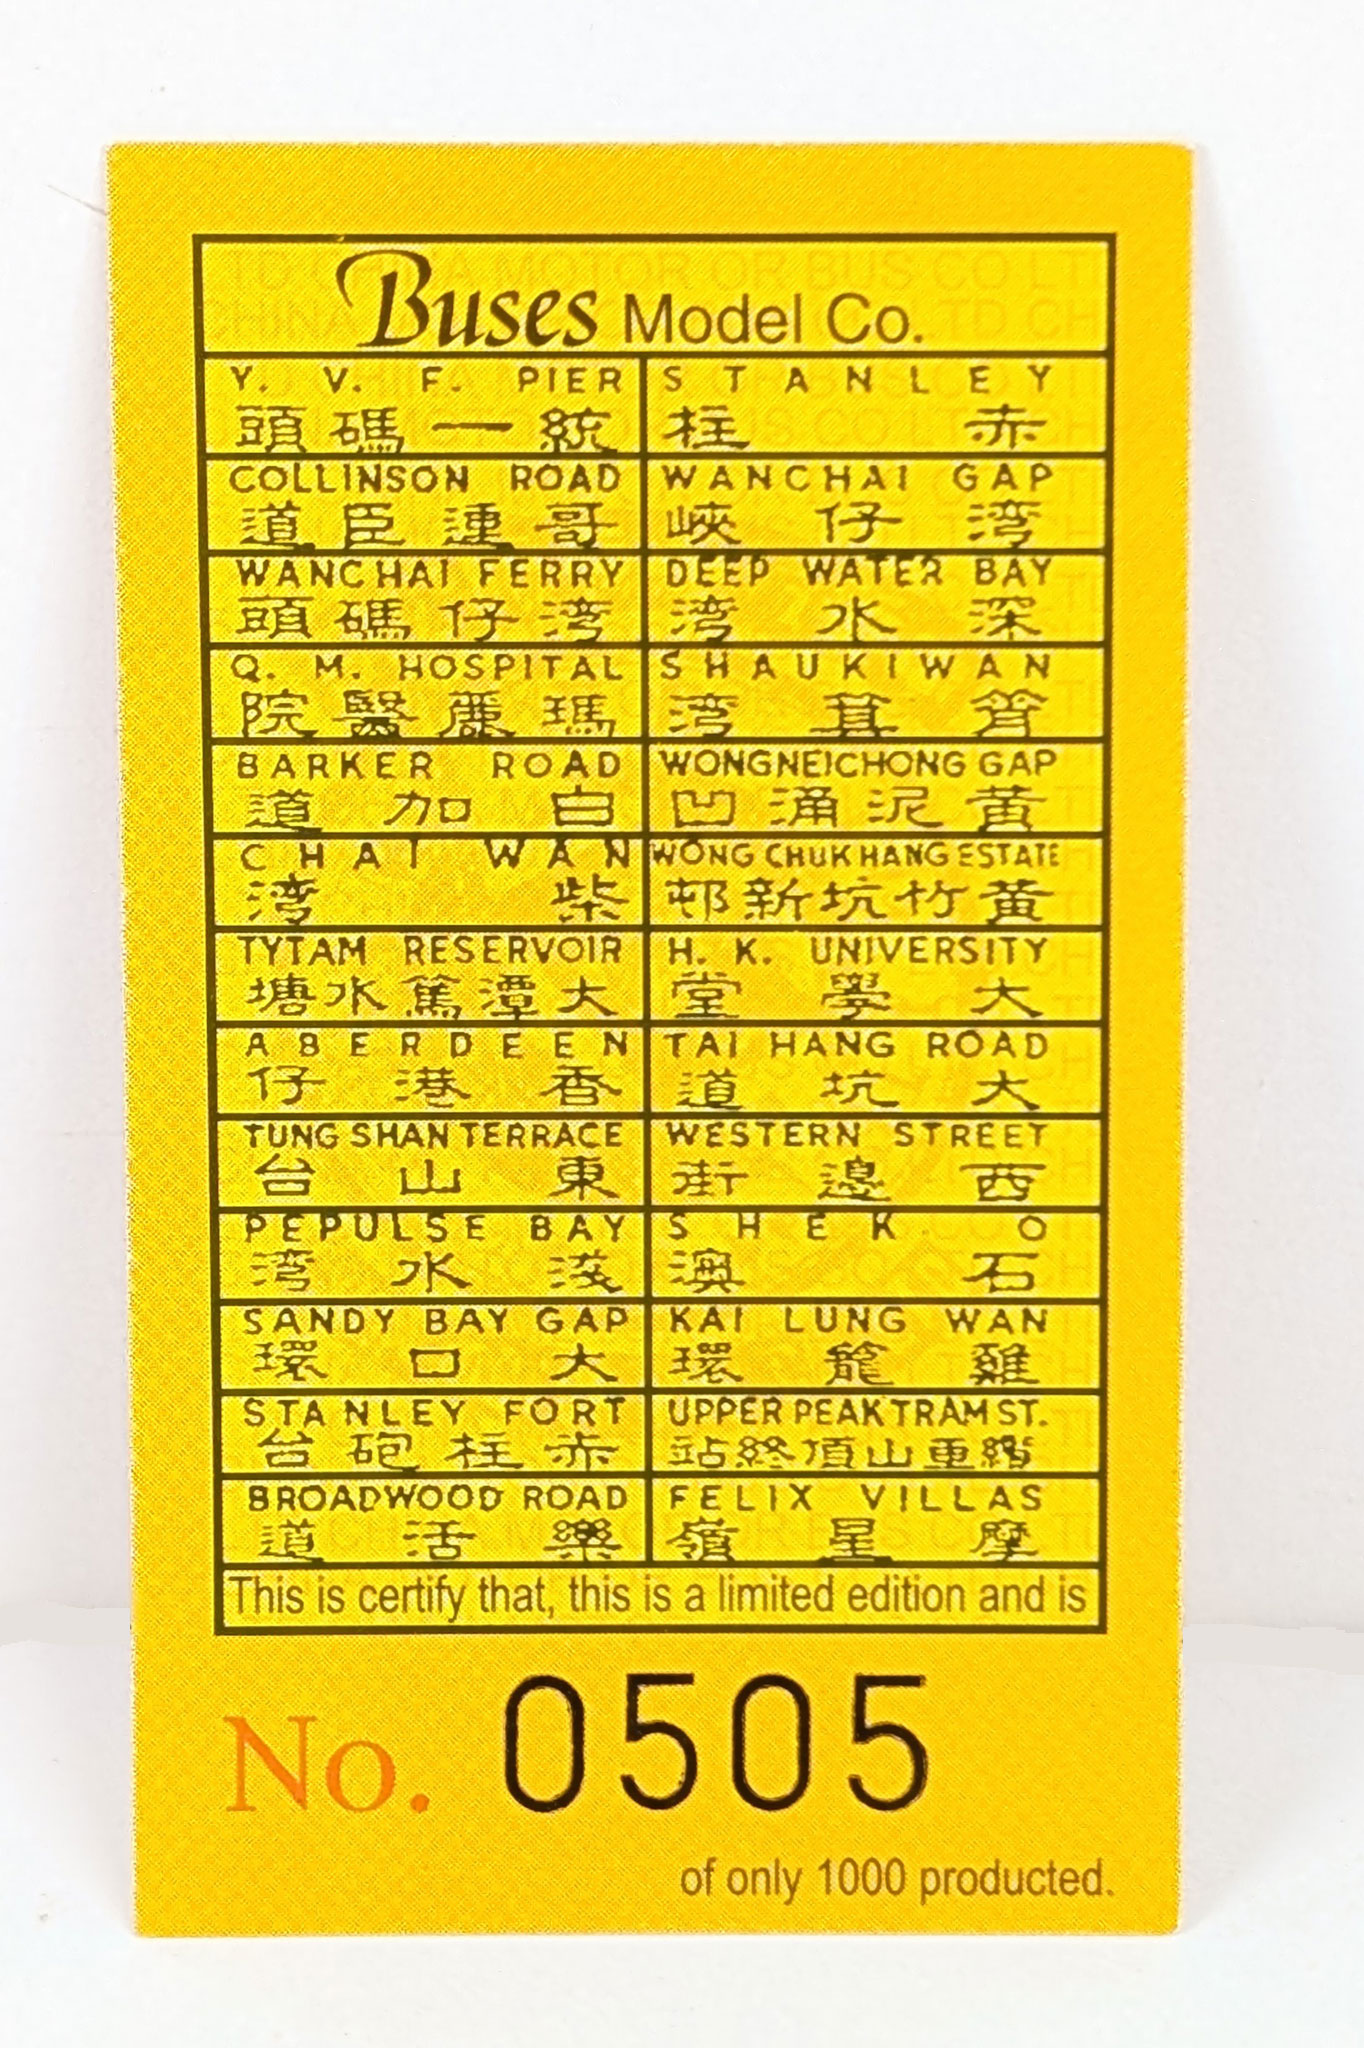 Buses Model Co.
Y. V. F. PIER
統一碼頭
STANLEY
赤柱
COLLINSON ROAD
哥連臣道
WANCHAI GAP
湾仔峽
WANCHAI FERRY
湾仔碼頭
DEEP WATER BAY
深水湾
Q. M. HOSPITAL
瑪麗醫院
SHAUKIWAN
筲箕湾
BARKER ROAD
白加道
WONGNEICHONG GAP
黃泥涌凹
CHAI WAN
柴湾
WONG CHUK HANG ESTATE
黃竹坑新邨
TYTAM RESERVOIR
大潭篤水塘
H. K. UNIVERSITY
大學堂
ABERDEEN
香港仔
TAI HANG ROAD
大坑道
TUNG SHAN TERRACE
東山台
WESTERN STREET
西邊街
PEPULSE BAY
淺水湾
SHEK O
石澳
SANDY BAY GAP
大口環
KAI LUNG WAN
雞籠環
STANLEY FORT
赤柱砲台
UPPER PEAK TRAM ST.
纜車山頂終站
BROADWOOD ROAD
樂活道
FELIX VILLAS
摩星嶺
This is certify that, this is a limited edition and is
No. 0505
of only 1000 producted.